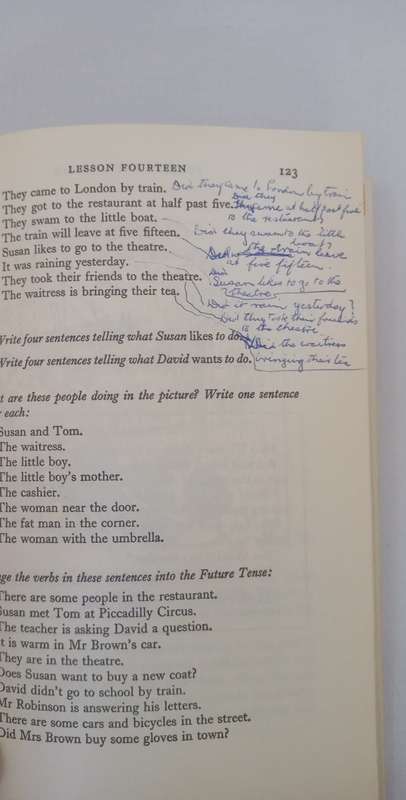 LESSON FOURTEEN 123
They came to London by train. Did they came to London by train
They got to the restaurant at half past five. Did they came at half past five
to the restaurant
They swam to the little boat. Did they swam to the little
boat?
The train will leave at five fifteen. the train leave
at five fifteen.
Susan likes to go to the theatre. Did
Susan likes to go to the
theatre
It was raining yesterday. Did it rain yesterday?
They took their friends to the theatre. Did they took their friends
to the theatre
The waitress is bringing their tea. Did the waitress
bringing their tea
Write four sentences telling what Susan likes to do.
Write four sentences telling what David wants to do.
t are these people doing in the picture? Write one sentence
each:
Susan and Tom.
The waitress.
The little boy.
The little boy's mother.
The cashier.
The woman near the door.
The fat man in the corner.
The woman with the umbrella.
ge the verbs in these sentences into the Future Tense:
There are some people in the restaurant.
Susan met Tom at Piccadilly Circus.
The teacher is asking David a question.
It is warm in Mr Brown's car.
They are in the theatre.
Does Susan want to buy a new coat?
David didn't go to school by train.
Mr Robinson is answering his letters.
There are some cars and bicycles in the street.
Did Mrs Brown buy some gloves in town?